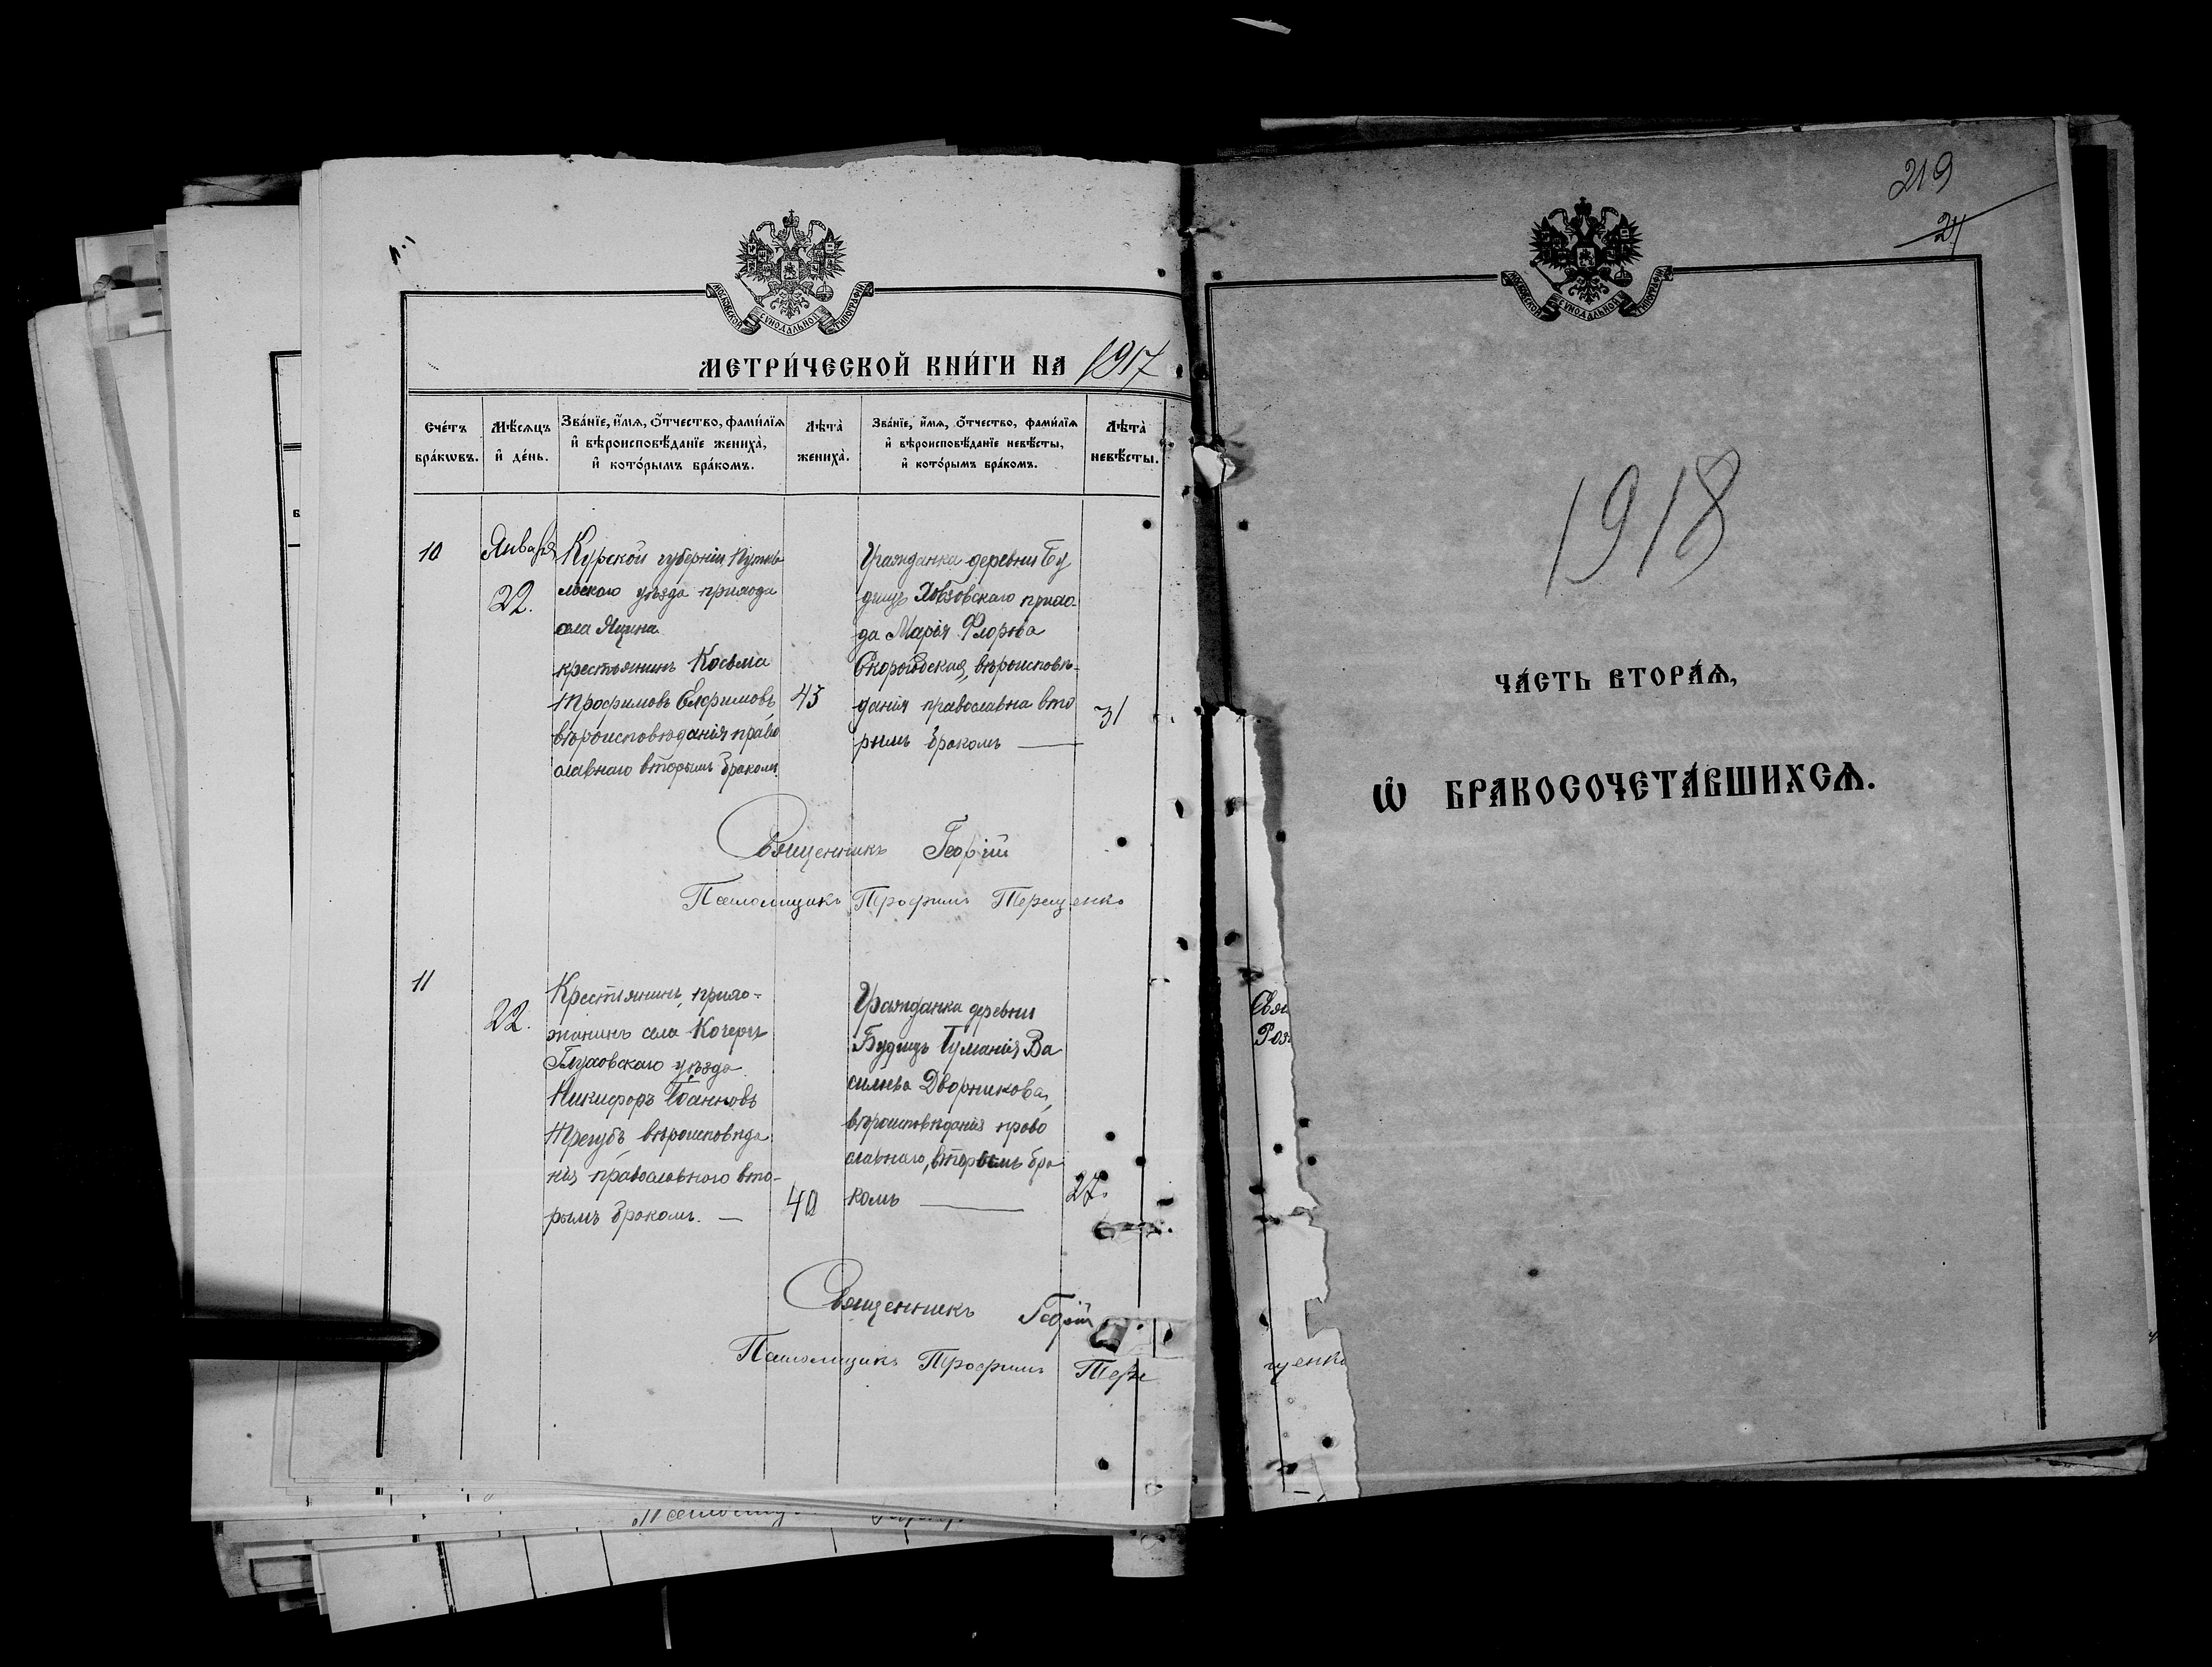 МОСКОВСКОЙ СѴНОДАЛЬНОЙ ТИПОГРАФІИ
МЕТРИ́ЧЕСКОЙ КНИ́ГИ НА 1917
Сче́тъ бра́кѡвъ.
Мѣ́сяцъ и҆ де́нь.
Зва́нїе, и҆́мя, ѻ҆́тчество, фами́лїя
и҆ вѣроисповѣ́данїе жениха̀,
и҆ кото́рымъ бра́комъ.
Лѣта̀ жениха̀.
Зва́нїе, и҆́мя, ѻ҆́тчество, фами́лїя
и҆ вѣроисповѣ́данїе невѣ́сты,
и҆ кото́рымъ бра́комъ.
Лѣта̀ невѣ́сты.
10
Января
22.
Курской губерніи Путив
льскаго уѣзда прихода
села Яцына
крестьянинъ Косьма
Трофимовъ Евфимовъ
вѣроисповѣданія право
славнаго вторымъ бракомъ
43
Гражданка деревни Бу
дищъ прихо-
да Марія Флорова
вѣроисповѣ-
данія православна вто
рымъ бракомъ
31
Священникъ Георгій
Псаломщикъ Трофимъ Терещенко
11
22.
Крестьянинъ, прихо-
жанинъ села Кочергъ
Глуховскаго уѣзда
Никифоръ Іоанновъ
Трегубъ вѣроисповѣда
нія православного вто-
рымъ бракомъ.
40
Гражданка деревни
Будищъ Ва
сильева Дворникова,
вѣроисповѣданія право
славнаго, вторымъ бра
комъ
27.
Священникъ Георгій
Псаломщикъ Трофимъ Тере
щенко
219
21
МОСКОВСКОЙ СѴНОДАЛЬНОЙ ТИПОГРАФІИ
1918
ЧА́СТЬ ВТОРА́Ѧ,
Ѡ҆ БРАКОСОЧЕТА́ВШИХСѦ.